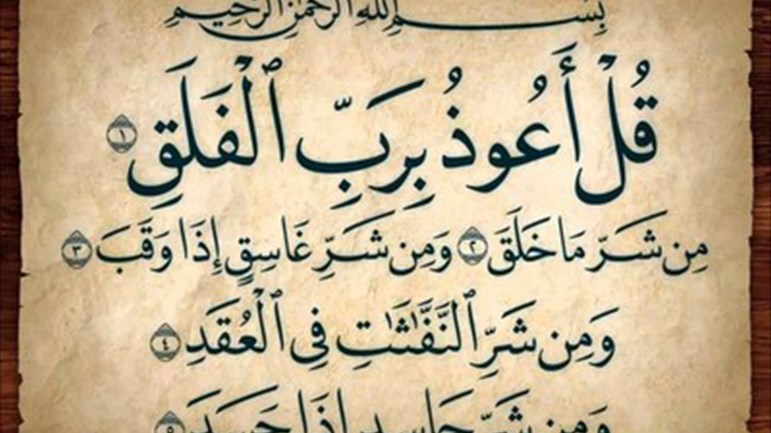 بِسْمِ اللهِ الرَّحْمٰنِ الرَّحِيمِ
قُلْ أَعُوذُ بِرَبِّ ٱلْفَلَقِ ١
مِن شَرِّ مَا خَلَقَ ٢ وَمِن شَرِّ غَاسِقٍ إِذَا وَقَبَ ٣
وَمِن شَرِّ ٱلنَّفَّـٰثَـٰتِ فِى ٱلْعُقَدِ ٤
وَمِن شَرِّ حَاسِدٍ إِذَا حَسَدَ ٥